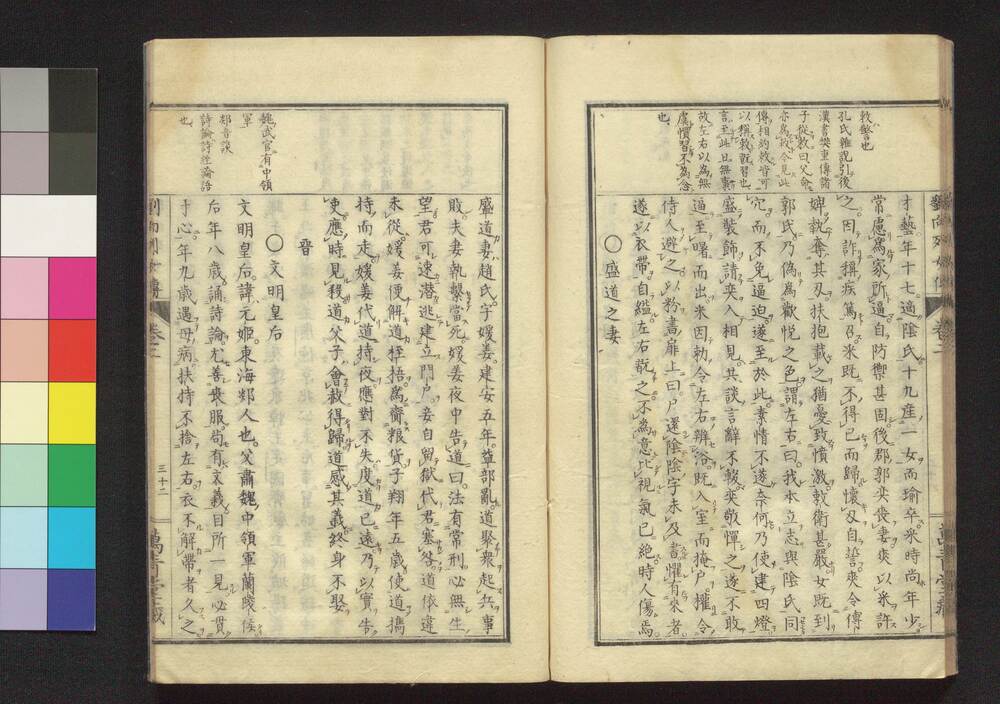 敕警也
孔氏雜説引後
漢書樊重傳諸
子從敕曰父命
亦爲敕今見此
傳相約敕皆可
以稱敕既習也
言至此且無事
故左右以爲無
虞慣習不爲念
也
才藝年十七適陰氏十九產一女而瑜卒采時尚年少
常慮爲家所逼自防禦甚固後郡郭奕喪妻爽以采許
之因詐稱疾篤召采既不得已而歸懷刃自誓爽令傅
婢執奪其刃扶抱載之猶憂致憤激敕衛甚嚴女既到
郭氏乃偽爲歡悅之色謂左右曰我本立志與陰氏同
穴而不免逼迫遂至於此素情不遂奈何乃使建四燈
盛裝飾請奕入相見共談言辭不輟奕敬憚之遂不敢
逼至曙而出采因勅令左右辨浴既入室而掩戶權令
侍人避之以粉書扉上曰尸還陰陰字未及書懼有來者
遂以衣帶自縊左右翫之不爲意比視氣已絕時人傷焉
○盛道之妻
盛道妻趙氏字媛姜建安五年益部亂道聚衆起兵事
敗夫妻執繫當死媛姜夜中告道曰法有常刑必無生
望君可速潛逃建立門戶妾自留獄代君塞咎道依違
未從媛姜便解道桎梏爲齎粮貨子翔年五歲使道攜
持而走媛姜代道持夜應對不失度道已遠乃以實告
吏應時見殺道父子會赦得歸道感其義終身不娶
晉
○文明皇后
文明皇后諱元姬東海郯人也父肅魏中領軍蘭陵侯
后年八歲誦詩論尤善喪服苟有文義目所一見必貫
于心年九歲遇母病扶持不捨左右衣不解帶者久之
魏武官有中領
軍
郯音談
詩論詩經論語
也
劉向列女傳
卷之二
三十二
萬青堂藏